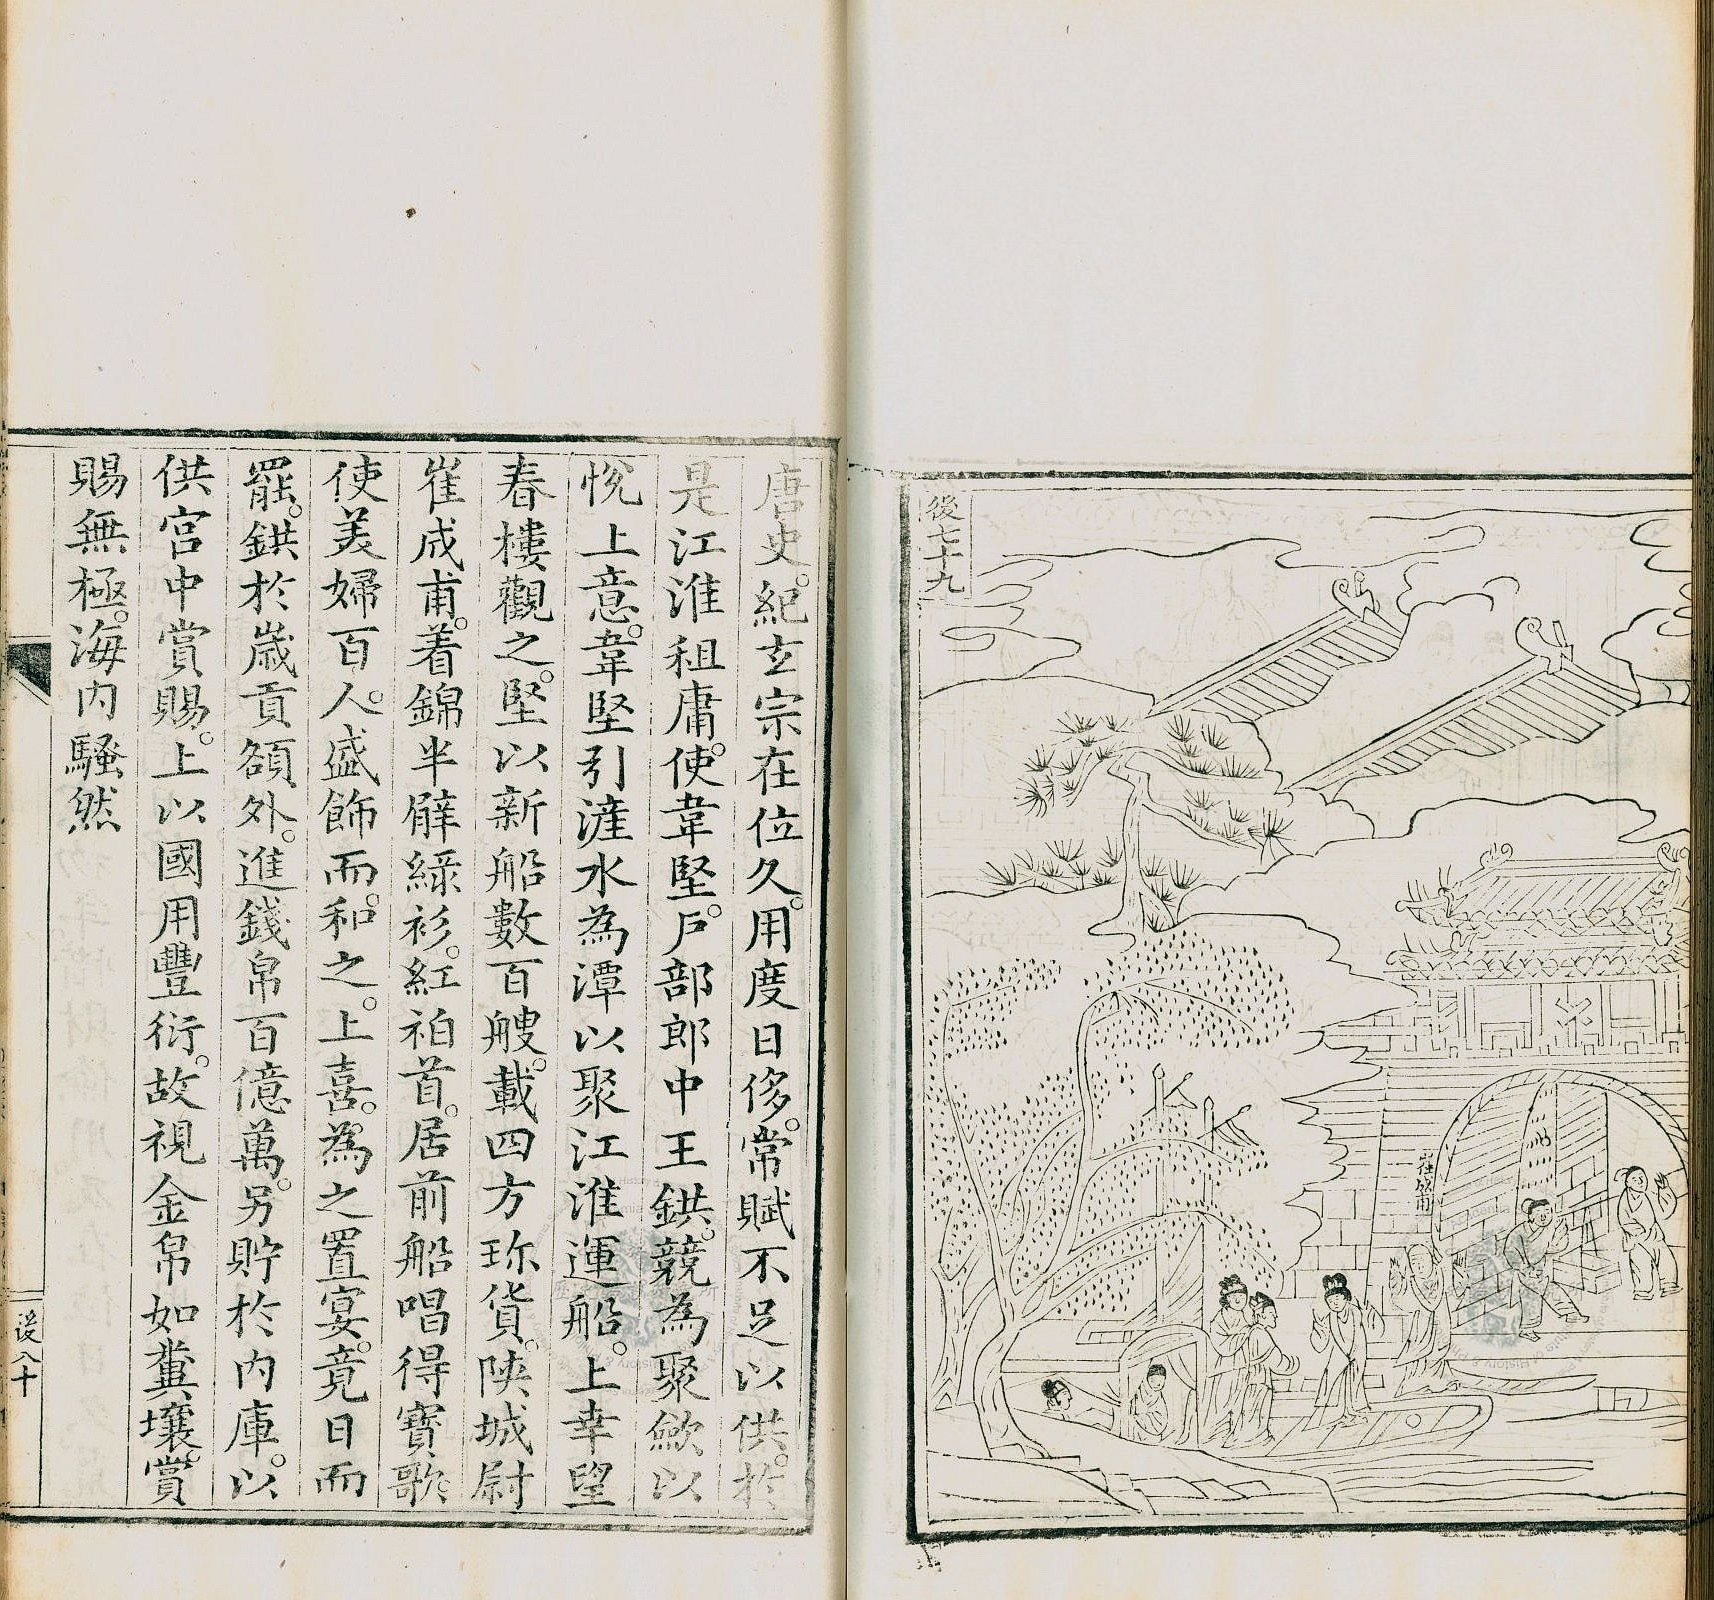 後七十九
崔成甫
唐史。紀玄宗在位久。用度日侈。常賦不足以供。於
是江淮租庸。使韋堅。戶部郎中王鉷。競為聚斂以
悅上意。韋堅引滻水為潭以聚江淮運船。上幸望
春樓觀之。堅以新船數百艘。載四方珎貨。陝城尉
崔成甫。着錦半臂綠衫。紅袙首。居前船唱得寶歌。
使美婦百人。盛飾而和之。上喜。為之置宴。竟日而
罷。鉷於歲貢額外。進錢帛百億萬。另貯於內庫。以
供宮中賞賜。上以國用豐衍。故視金帛如糞壤。賞
賜無極。海內騷然
後八十